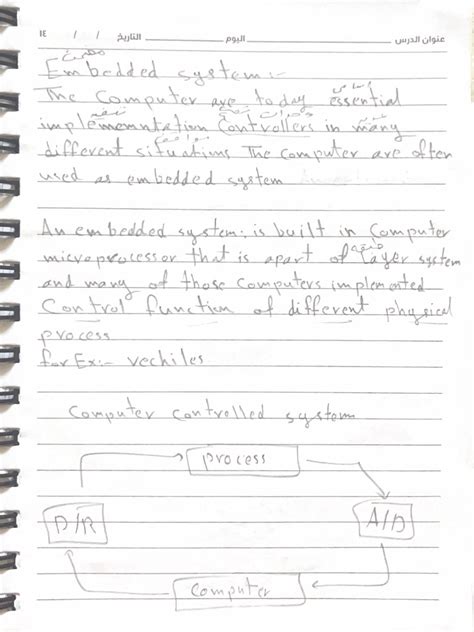 عنوان الدرس اليوم التاريخ / / ١٤
Embedded system:-
أساسي
The Computer are to day essential
implememntation Controllers in many
different situations The computer are often
used as embedded system
An embedded system: is built in Computer
microprocessor that is apart of Layer system
and many of those Computers implemented
Control function of different physical
process
for Ex:- vechiles
Computer controlled system
process
D/R A/D
Computer